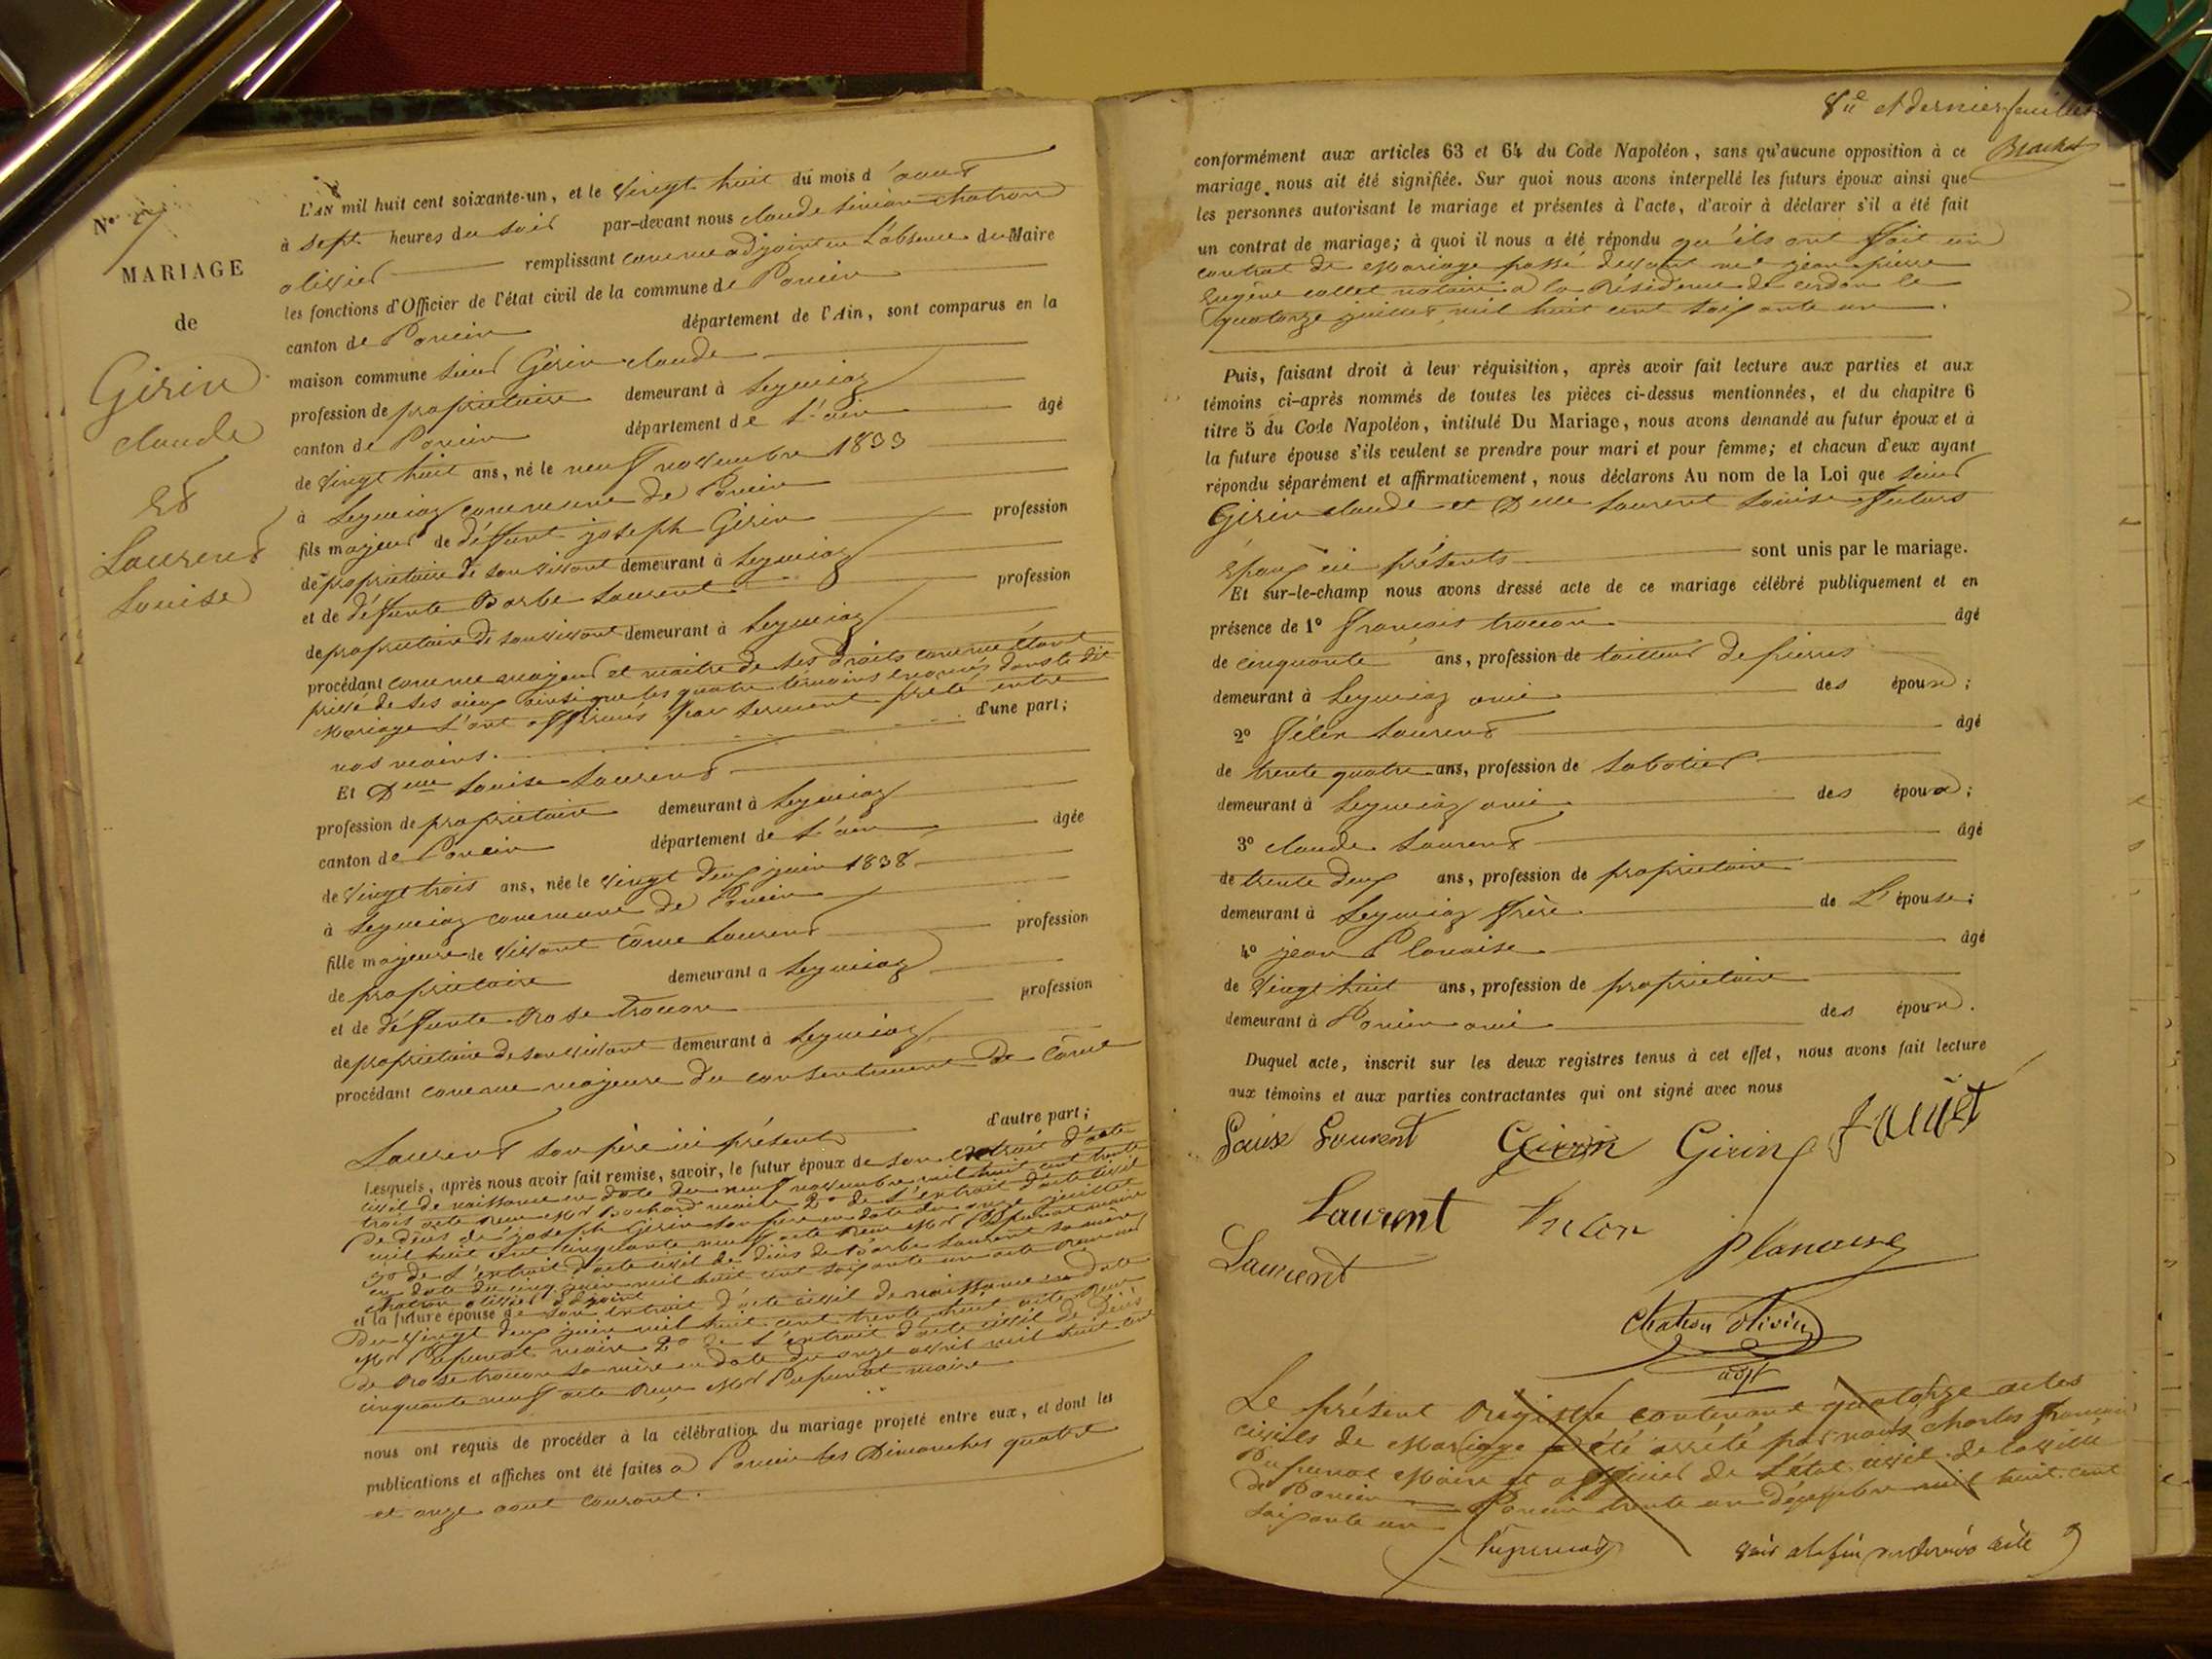 N° 7
MARIAGE
de
Girin
claude
Et
Laurent
Louise
L'AN mil huit cent soixante-un, et le vingt huit du mois d'aout
à sept heures du soir par-devant nous claude chatron
olivier remplissant comme adjoint en L'absence du Maire
les fonctions d'Officier de l'état civil de la commune de Poncin
canton de Poncin département de l'Ain, sont comparus en la
maison commune sieur Girin claude
profession de propriétaire demeurant à Leymiaz
canton de Poncin département de L'ain âgé
de vingt huit ans, né le neuf novembre 1833
à Leymiaz commune de Poncin
fils majeur de défunt joseph Girin profession
de propriétaire de son vivant demeurant à Leymiaz
et de défunte Barbe Laurent profession
de propriétaire de son vivant demeurant à Leymiaz
procédant comme majeur et maitre de ses droits comme étant
privé de ses aieux ainsi que les quatre témoins enoncés dans le dit
Mariage L'ont affirmés par serment prêté entre
nos mains. d'une part;
Et Delle Louise Laurent
profession de propriétaire demeurant à Leymiaz
canton de Poncin département de L'ain âgée
de vingt trois ans, née le vingt deux juin 1838
à Leymiaz commune de Poncin
fille majeure de vivant Côme Laurent profession
de propriétaire demeurant à Leymiaz
et de défunte Rose trocon profession
de propriétaire de son vivant demeurant à Leymiaz
procédant comme majeure du consentement de Côme
Laurent son père ici présent d'autre part;
Lesquels, après nous avoir fait remise, savoir, le futur époux de son extrait d'acte
civil de naissance en date du neuf novembre mil huit cent trente
trois acte reçu Mr Bochard maire 2° de L'extrait d'acte civil
de décès de joseph Girin son père en date du onze juillet
mil huit cent cinquante neuf acte reçu Mr Pupunat maire
3° de L'extrait d'acte civil de décès de Barbe Laurent sa mère
en date du cinq juin mil huit cent soixante un acte reçu
chatron olivier adjoint
et la future épouse de son extrait d'acte civil de naissance en date
Du vingt deux juin mil huit cent trente huit acte reçu
Mr Pupunat maire 2° de L'extrait d'acte civil de décès
de Rose trocon sa mère en date du onze avril mil huit cent
cinquante neuf acte reçu Mr Pupunat maire
nous ont requis de procéder à la célébration du mariage projeté entre eux, et dont les
publications et affiches ont été faites à Poncin les Dimanches quatre
et onze aout courant.
8e et dernier feuillet
conformément aux articles 63 et 64 du Code Napoléon, sans qu'aucune opposition à ce
mariage nous ait été signifiée. Sur quoi nous avons interpellé les futurs époux ainsi que
les personnes autorisant le mariage et présentes à l'acte, d'avoir à déclarer s'il a été fait
un contrat de mariage; à quoi il nous a été répondu qu'ils ont fait un
contrat de Mariage passé devant me jean pierre
Eugène collet notaire à la Résidence de cerdon le
quatorze juillet mil huit cent soixante un.
Puis, faisant droit à leur réquisition, après avoir fait lecture aux parties et aux
témoins ci-après nommés de toutes les pièces ci-dessus mentionnées, et du chapitre 6
titre 5 du Code Napoléon, intitulé Du Mariage, nous avons demandé au futur époux et à
la future épouse s'ils veulent se prendre pour mari et pour femme; et chacun d'eux ayant
répondu séparément et affirmativement, nous déclarons Au nom de la Loi que sieur
Girin claude et Delle Laurent Louise futurs
Epoux ici présents sont unis par le mariage.
Et sur-le-champ nous avons dressé acte de ce mariage célébré publiquement et en
présence de 1° françois trocon âgé
de cinquante ans, profession de tailleur de pierres
demeurant à Leymiaz ami des époux;
2° félix Laurent âgé
de trente quatre ans, profession de sabotier
demeurant à Leymiaz ami des époux;
3° claude Laurent âgé
de trente deux ans, profession de propriétaire
demeurant à Leymiaz frère de L'épouse;
4° jean Planaise âgé
de vingt huit ans, profession de propriétaire
demeurant à Poncin ami des époux.
Duquel acte, inscrit sur les deux registres tenus à cet effet, nous avons fait lecture
aux témoins et aux parties contractantes qui ont signé avec nous
Louise Laurent Girin Girin
Laurent Trocon Planaise
Laurent
Chatron olivier
adjt
Le présent Registre contenant quatorze actes
civils de Mariage a été arrêté par nous charles françois
Pupunat Maire et officier de l'état civil de la ville
de Poncin Poncin trente un décembre mil huit cent
soixante un
Pupunat